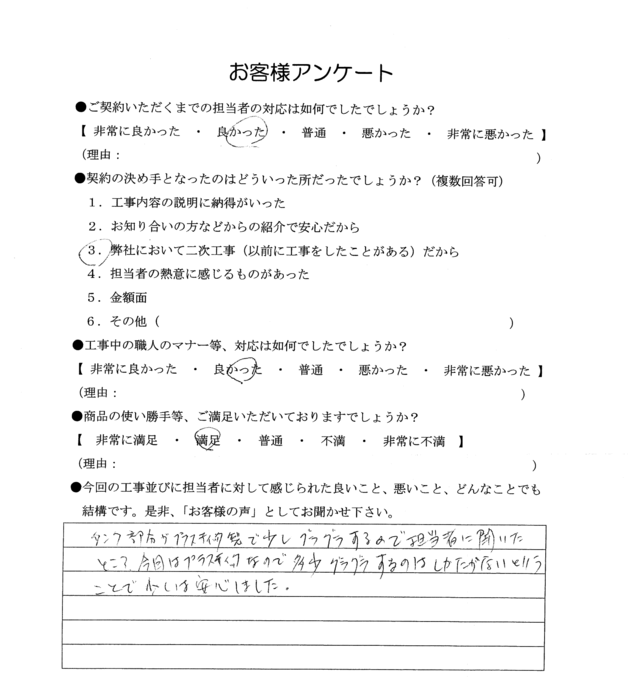 お客様アンケート
●ご契約いただくまでの担当者の対応は如何でしたでしょうか？
【 非常に良かった ・ 良かった ・ 普通 ・ 悪かった ・ 非常に悪かった 】
（理由： ）
●契約の決め手となったのはどういった所だったでしょうか？（複数回答可）
１．工事内容の説明に納得がいった
２．お知り合いの方などからの紹介で安心だから
３．弊社において二次工事（以前に工事をしたことがある）だから
４．担当者の熱意に感じるものがあった
５．金額面
６．その他（ ）
●工事中の職人のマナー等、対応は如何でしたでしょうか？
【 非常に良かった ・ 良かった ・ 普通 ・ 悪かった ・ 非常に悪かった 】
（理由： ）
●商品の使い勝手等、ご満足いただいておりますでしょうか？
【 非常に満足 ・ 満足 ・ 普通 ・ 不満 ・ 非常に不満 】
（理由： ）
●今回の工事並びに担当者に対して感じられた良いこと、悪いこと、どんなことでも
結構です。是非、「お客様の声」としてお聞かせ下さい。
タンク部分がプラスチック製で少しグラグラするので担当者に聞いた
ところ、今回はプラスチックなので多少グラグラするのはしかたがないという
ことで少しは安心しました。